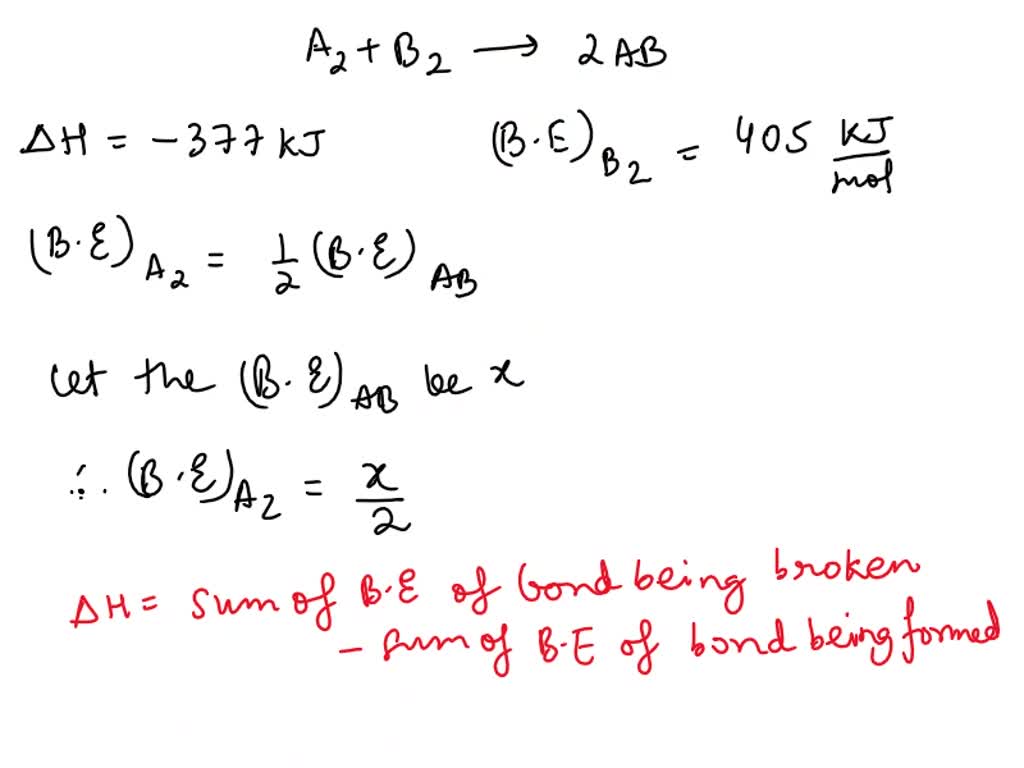 A₂ + B₂ → 2AB
ΔH = -377 kJ (B.E)B₂ = 405 kJ/mol
(B.E)A₂ = 1/2 (B.E)AB
Let the (B.E)AB be x
∴ (B.E)A₂ = x/2
ΔH = sum of B.E of bond being broken
- sum of B.E of bond being formed